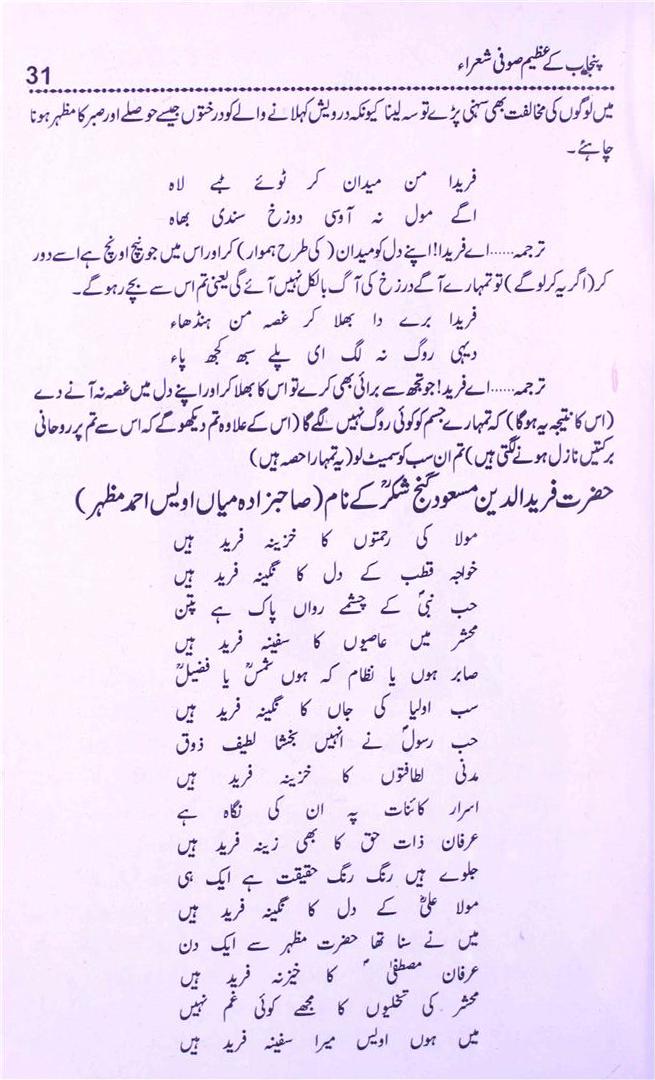 پنجاب کے عظیم صوفی شعراء
31
میں لوگوں کی مخالفت بھی سہنی پڑے تو سہ لینا کیونکہ درویش کہلانے والے کو درختوں جیسے حوصلے اور صبر کا مظہر ہونا
چاہئے۔
فریدا من میدان کر ٹوئے ٹبے لاہ
اگے مول نہ آوسی دوزخ سندی بھاہ
ترجمہ......اے فریدا! اپنے دل کو میدان (کی طرح ہموار) کر اور اس میں جو نیچ اونچ ہے اسے دور
کر (اگر یہ کر لو گے) تو تمہارے آگے درزخ کی آگ بالکل نہیں آئے گی یعنی تم اس سے بچے رہو گے۔
فریدا برے دا بھلا کر غصہ من ہنڈھاء
دیہی روگ نہ لگ ای پلے سبھ کجھ پاء
ترجمہ......اے فرید! جو تجھ سے برائی بھی کرے تو اس کا بھلا کر اور اپنے دل میں غصہ نہ آنے دے
(اس کا نتیجہ یہ ہوگا) کہ تمہارے جسم کو کوئی روگ نہیں لگے گا (اس کے علاوہ تم دیکھو گے کہ اس سے تم پر روحانی
برکتیں نازل ہونے لگتی ہیں) تم ان سب کو سمیٹ لو (یہ تمہارا حصہ ہیں)
حضرت فرید الدین مسعود گنج شکرؒ کے نام (صاحبزادہ میاں اویس احمد مظہر)
مولا کی رحمتوں کا خزینہ فرید ہیں
خواجہ قطب کے دل کا نگینہ فرید ہیں
حب نبیؐ کے چشمے رواں پاک ہے پتن
محشر میں عاصیوں کا سفینہ فرید ہیں
صابر ہوں یا نظام کہ ہوں شمسؒ یا فضیلؒ
سب اولیا کی جاں کا نگینہ فرید ہیں
حب رسولؐ نے انہیں بخشا لطیف ذوق
مدنی لطافتوں کا خزینہ فرید ہیں
اسرار کائنات پہ ان کی نگاہ ہے
عرفان ذات حق کا بھی زینہ فرید ہیں
جلوے ہیں رنگ رنگ حقیقت ہے ایک ہی
مولا علیؓ کے دل کا نگینہ فرید ہیں
میں نے سنا تھا حضرت مظہر سے ایک دن
عرفان مصطفیٰؐ کا خیزنہ فرید ہیں
محشر کی تخلیوں کا مجھے کوئی غم نہیں
میں ہوں اویس میرا سفینہ فرید ہیں